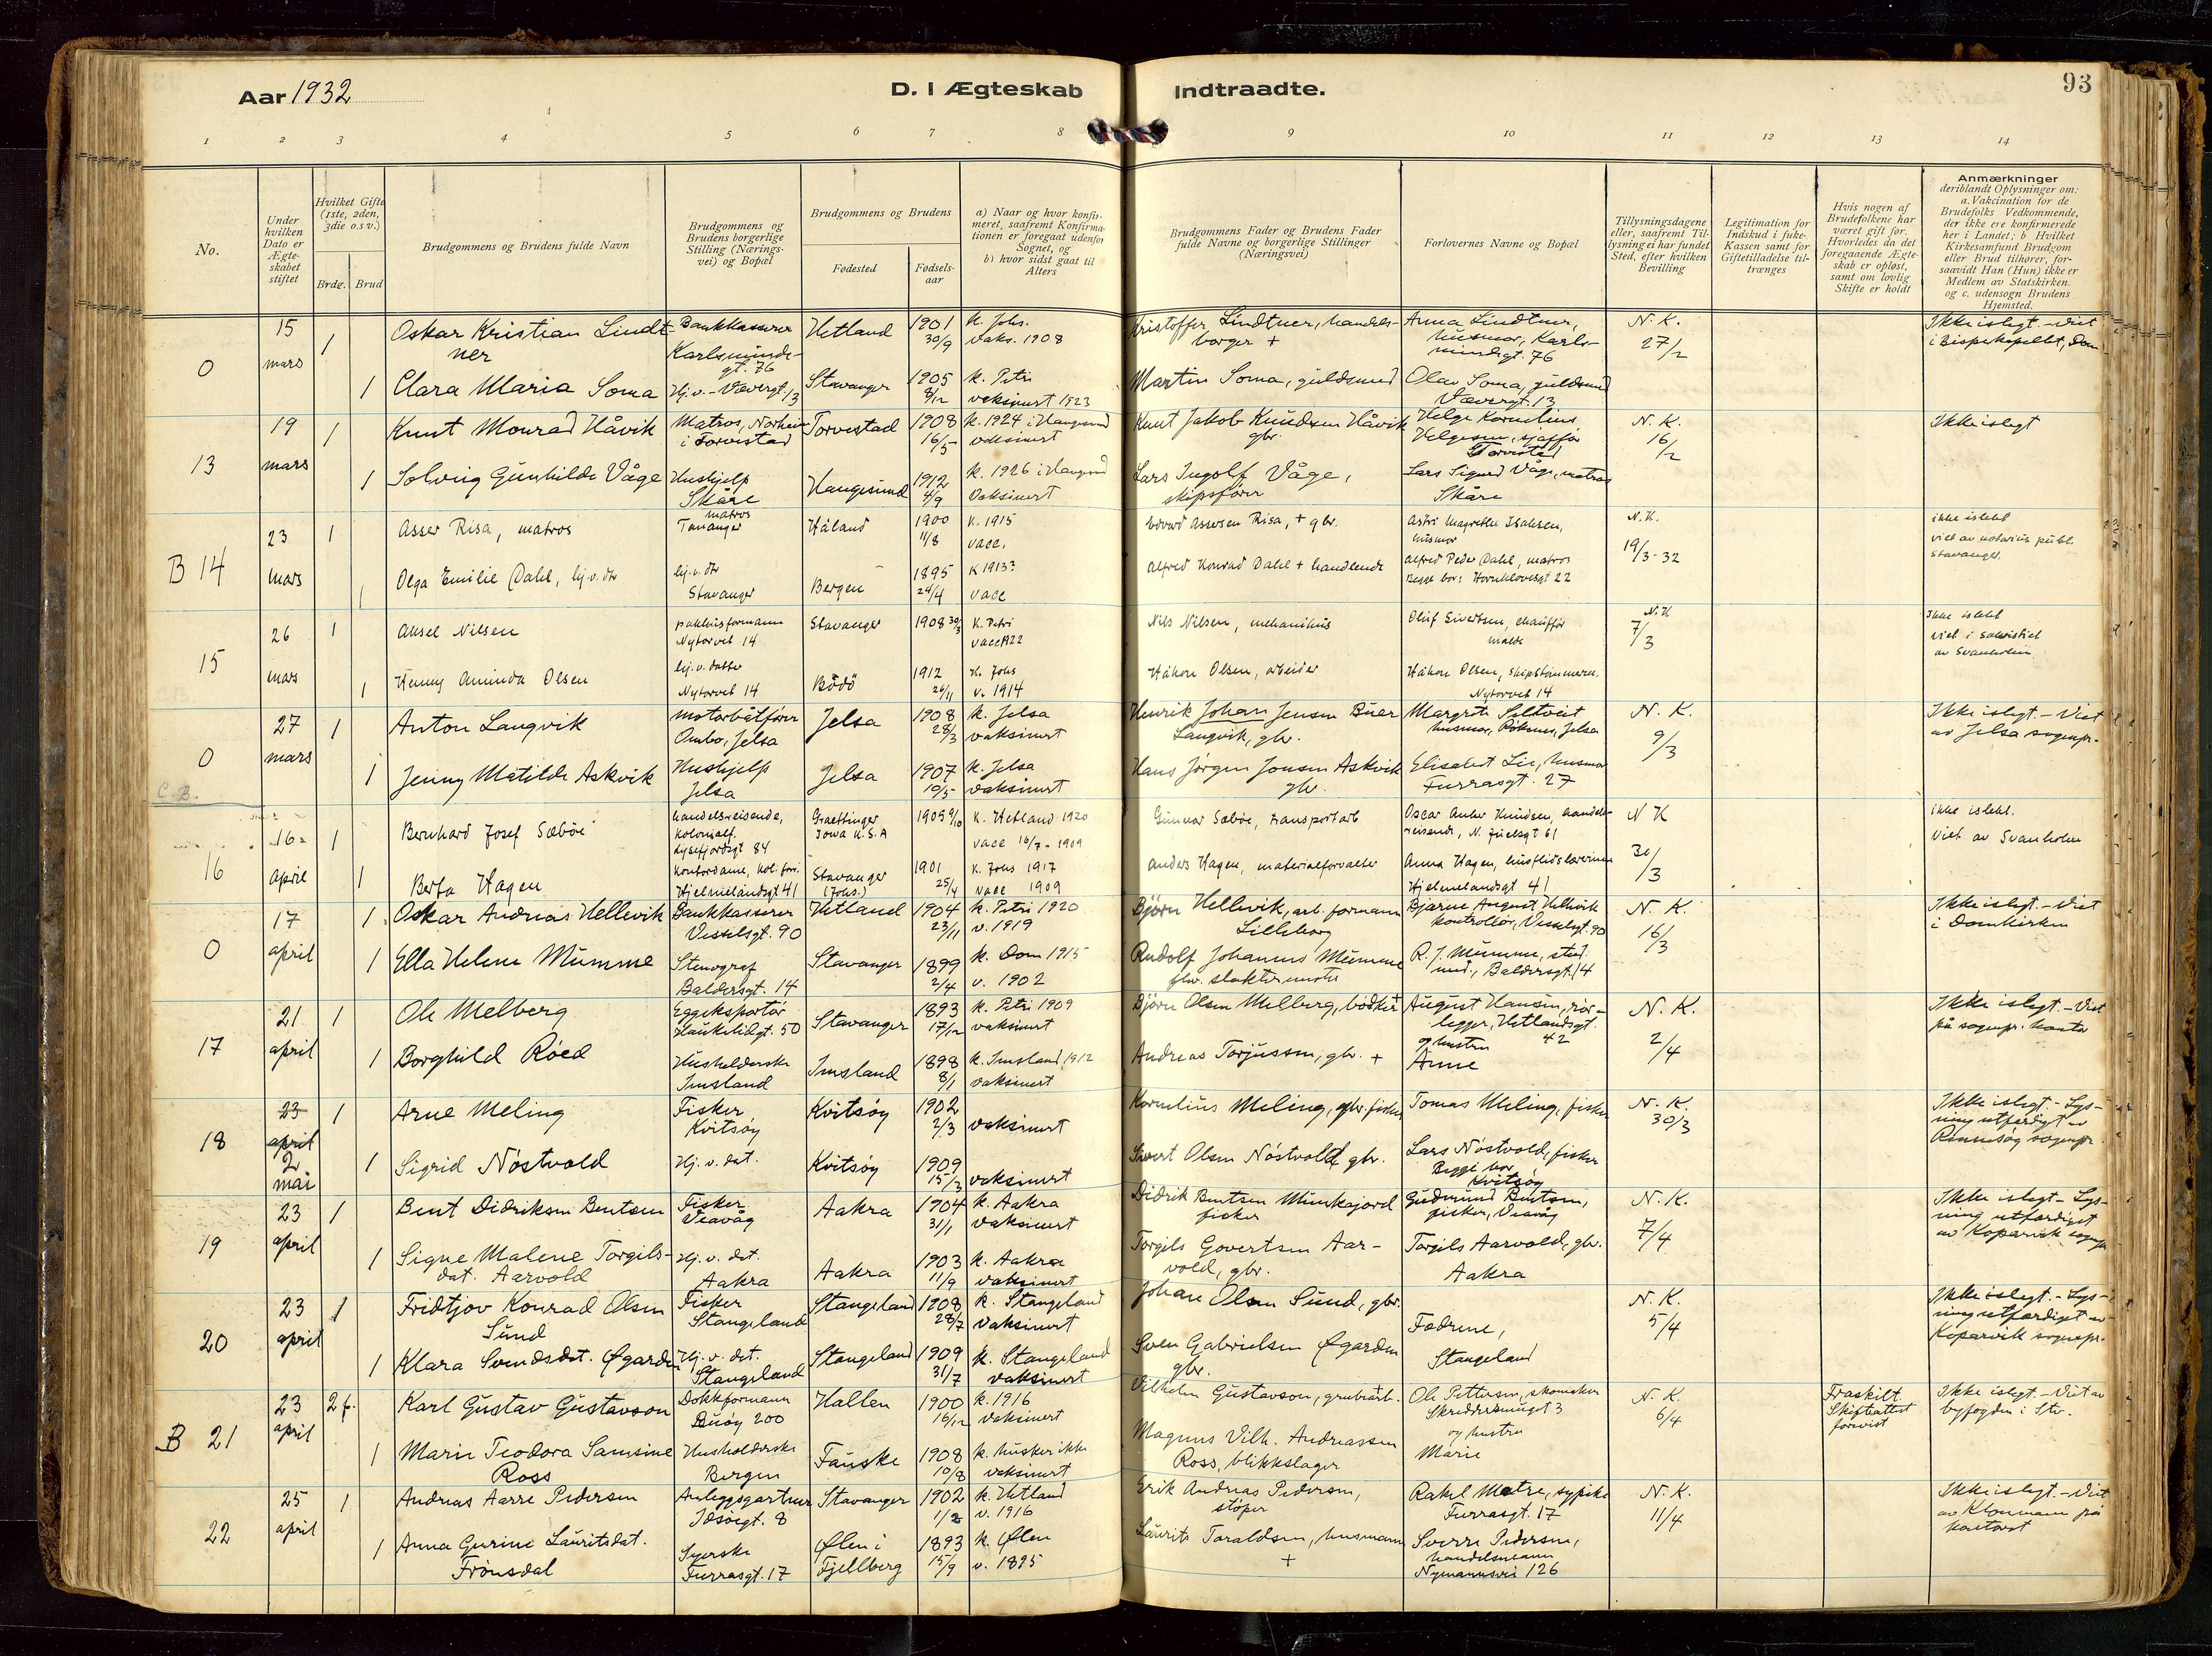 Aar 1932
D. I Ægteskab Indtraadte.
93
1 2 3 4 5 6 7 8 9 10 11 12 13 14
No.
Under hvilken Dato er Ægteskabet stiftet
Hvilket Gifte (1ste, 2den, 3die o.s v.)
Brdg. Brud
Brudgommens og Brudens fulde Navn
Brudgommens og Brudens borgerlige Stilling (Næringsvei) og Bopæl
Brudgommens og Brudens
Fødested
Fødselsaar
a) Naar og hvor konfirmeret, saafremt Konfirmationen er foregaat udenfor Sognet, og
b) hvor sidst gaat til Alters
Brudgommens Fader og Brudens Fader fulde Navne og borgerlige Stillinger (Næringsvei)
Forlovernes Navne og Bopæl
Tillysningsdagene eller, saafremt Tillysning ei har fundet Sted, efter hvilken Bevilling
Legitimation for Indskud i Enke-Kassen samt for Giftetilladelse tiltrænges
Hvis nogen af Brudefolkene har været gift før. Hvorledes da det foregaaende Ægteskab er opløst, samt om lovlig Skifte er holdt
Anmærkninger
deriblandt Oplysninger om: a. Vakcination for de Brudefolks Vedkommende, der ikke ere konfirmerede her i Landet; b Hvilket Kirkesamfund Brudgom eller Brud tilhører, forsaavidt Han (Hun) ikke er Medlem av Statskirken. og c. udensogn Brudens Hjemsted.
0 15 mars 1 Oskar Kristian Lindtner Bankkasserer Karlsmindegt. 76 Hetland 1901 30/9 k. Johs. vaks. 1908 Kristoffer Lindtner, handelsborger + Anna Lindtner, husmor, Karlsmindegt. 76 N. K. 27/2 Ikke i slegt. - Viet i Bispekapellet, Dom
1 Clara Maria Soma Hj. v. - Vævergt. 13 Stavanger 1905 8/12 k. Petri vaksinert 1923 Martin Soma, guldsmed Olav Soma, guldsmed Vævergt. 13
13 19 mars 1 Knut Monrad Håvik Matros, Norheim i Torvestad Torvestad 1908 16/5 k. 1924 i Haugesund vaksinert Knut Jakob Knudsen Håvik gbr. Helge Kornelius Helgesen, sjaffør Torvestad N. K. 16/2 Ikke i slegt
1 Solveig Gunhilde Våge Hushjelp Skåre Haugesund 1912 4/9 k. 1926 i Haugesund Vaksinert Lars Ingolf Våge, skipsfører Lars Sigurd Våge, matros Skåre
B 14 23 mars 1 Asser Risa, matros matros Tananger Håland 1900 11/8 K. 1915 vacc. Edvard Assersen Risa, + gbr. Astri Magrethe Isaksen, husmor N. K. 19/3-32 ikke i slekt viet av notarius publ. Stavanger.
1 Olga Emilie Dahl, hj. v. dtr hj. v. dtr Stavanger Bergen 1895 24/4 K 1913? vacc Alfred Konrad Dahl + handlende Alfred Peder Dahl, matros Begge bor: Hornklovesgt 22
15 26 mars 1 Aksel Nilsen pakkhusformann Nytorvet 14 Stavanger 1908 30/3 K. Petri vacc 1922 Nils Nilsen, mekanikus Oluf Sivertsen, chauffør Malde N. K 7/3 Ikke i slekt viet i sakristiet av Svanholm
1 Henny Aminda Olsen hj. v. datter Nytorvet 14 Bodö 1912 26/11 K. Johs v. 1914 Håkon Olsen, arbeider Håkon Olsen, skipstømmerm. Nytorvet 14
0 27 mars 1 Anton Langvik motorbåtfører Ombo, Jelsa Jelsa 1908 28/3 k. Jelsa vaksinert Henrik Johan Jensen Buer Langvik, gbr. Margrete Seltveit husmor, Jelsa N. K. 9/3 Ikke i slegt. - Viet av Jelsa sognepr.
1 Jenny Matilde Askvik Hushjelp Jelsa Jelsa 1907 10/5 k. Jelsa vaksinert Hans Jørgen Jonsen Askvik gbr. Elisabet Lie, husmor Furrasgt. 27
C. B.
16 16 april 1 Bernhard Josef Sæbøe handelsreisende, kolonialf. Lysefjordsgt 84 Graettinger Iowa U.S.A 1905 9/10 K. Hetland 1920 vacc 16/7-1909 Gunnar Sæbøe, transportarb Oscar Anker Knudsen, handelsreisende, N. Juelsgt 61 N K 30/3 ikke i slekt. Viet av Svanholm
1 Berta Hagen Kontordame, kol. forr. Hjelmelandsgt 41 Stavanger (Johs.) 1901 25/4 K. Johs 1917 vacc 1909 Anders Hagen, materialforvalter Anna Hagen, husflidslærerinne Hjelmelandsgt 41
0 17 april 1 Oskar Andreas Hellevik Bankkasserer Vesselsgt. 90 Hetland 1904 23/11 k. Petri 1920 v. 1919 Bjørn Hellevik, arb. formann Lilleborg Bjarne August Hellevik kontrollør, Vesselsgt. 90 N. K. 16/3 Ikke i slegt. - Viet i Domkirken
1 Ella Helene Mumme Stenograf Baldersgt. 14 Stavanger 1899 2/4 k. Dom 1915 v. 1902 Rudolf Johannes Mumme slaktermester R. J. Mumme, stud. med., Baldersgt. 14
17 21 april 1 Ole Melberg Eggeksportør Haukeligt. 50 Stavanger 1893 17/12 k. Petri 1909 vaksinert Bjørn Olsen Melberg, bødker August Hansen, rørlegger, Hetlandsgt. 42 N. K. 2/4 Ikke i slegt. - Viet på sognepr. kontor
1 Borghild Röed Husholderske Imsland Imsland 1898 8/1 k. Imsland 1912 vaksinert Andreas Torjussen, gbr. + og hustru Anne
18 23 april 2 mai 1 Arne Meling Fisker Kvitsøy Kvitsøy 1902 2/3 vaksinert Kornelius Meling, gbr. fisker Tomas Meling, fisker N. K. 30/3 Ikke i slegt. - Lysning utferdiget av Rennesøy sognepr.
1 Sigrid Nöstvold Hj. v. dat. Kvitsøy 1909 15/3 vaksinert Sivert Olsen Nöstvold, gbr. Lars Nöstvold, fisker Begge bor Kvitsöy
19 23 april 1 Bent Didriksen Bentsen Fisker Veavåg Aakra 1904 31/1 k. Aakra vaksinert Didrik Bentsen Munkejord fisker Gudmund Bentsen, fisker, Veavåg N. K. 7/4 Ikke i slegt - Lysning utferdiget av Kopervik sognepr
1 Signe Malene Torgilsdat. Aarvold Hj. v. dat. Aakra Aakra 1903 11/9 k. Aakra vaksinert Torgils Govertsen Aarvold, gbr. Torgils Aarvold, gbr. Aakra
20 23 april 1 Fridtjov Konrad Olsen Sund Fisker Stangeland Stangeland 1908 28/7 k. Stangeland vaksinert Johan Olsen Sund, gbr. Fædrene, Stangeland N. K. 5/4 Ikke i slegt. - Lysning utferdiget av Kopervik sognepr.
1 Klara Svendsdat. Øgarden Hj. v. dat. Stangeland Stangeland 1909 31/7 k. Stangeland vaksinert Sven Gabrielsen Øgarden gbr.
B 21 23 april 2 f. Karl Gustav Gustavson Dokkformann Buøy 200 Hallen 1900 16/12 k. 1916 vaksinert Vilhelm Gustavson, grubearb. Ole Pettersen, skomaker Skreddersmuget 3 N. K. 6/4 Fraskilt. Skifteattest forevist Ikke i slegt. - Viet av byfogden i Stv.
1 Marie Teodora Samsine Ross Husholderske Bergen Fauske 1908 10/8 k. husker ikke vaksinert Magnus Vilh. Andreassen Ross, blikkslager og hustru Marie
22 25 april 1 Andreas Aarre Pedersen Anleggsgartner Idsøegt. 8 Stavanger 1902 1/2 k. Hetland v. 1916 Erik Andreas Pedersen, støper Rakel Matre, sypike Furrasgt. 17 N. K. 11/4 Ikke i slegt. - Viet av Kloumann på kontoret
1 Anna Gurine Lauritsdat. Frönsdal Syerske Furrasgt. 17 Ølen i Fjellberg 1893 15/9 k. Ølen v. 1895 Laurits Toraldsen, husmann + Sverre Pedersen, handelsmann Nymannsvei 126